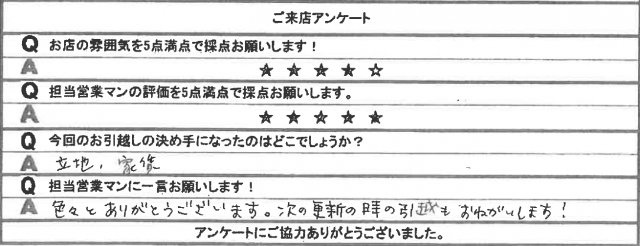 ご来店アンケート
Q お店の雰囲気を5点満点で採点お願いします！
A ★ ★ ★ ★ ☆
Q 担当営業マンの評価を5点満点で採点お願いします。
A ★ ★ ★ ★ ★
Q 今回のお引越しの決め手になったのはどこでしょうか？
A 立地，家賃
Q 担当営業マンに一言お願いします！
A 色々とありがとうございます。次の更新の時の引越もおねがいします！
アンケートにご協力ありがとうございました。